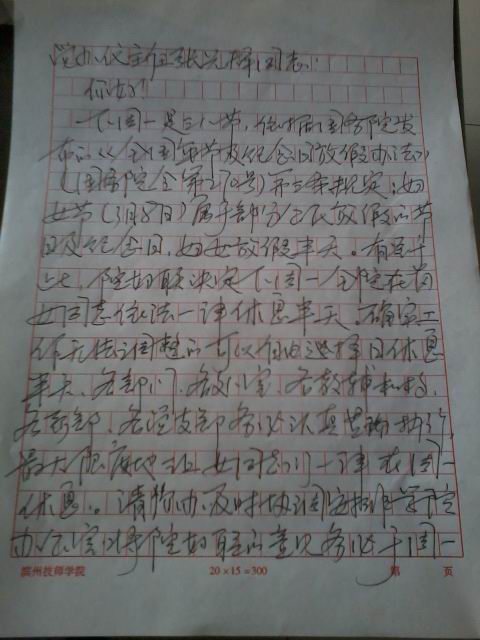 院办仪主任张元择同志：
你好！
下周一是三八节，依据国务院发
布的《全国年节及纪念日放假办法》
（国务院令第270号）第三条规定：妇
女节（3月8日）属于部分公民放假的节
日及纪念日，妇女放假半天。有鉴于
此，院妇联决定下周一全院在岗
女同志依法一律休息半天。确实工
作无法调整的可以自己选择日休息
半天。各部门、各办公室、各教辅机构、
各系部、各党支部务必认真贯彻执行，
最大限度地让女同志们一律在周一
休息。请你办及时协调安排
办公室将院妇联的意见务必于周一
滨州技师学院 20×15=300 第 页